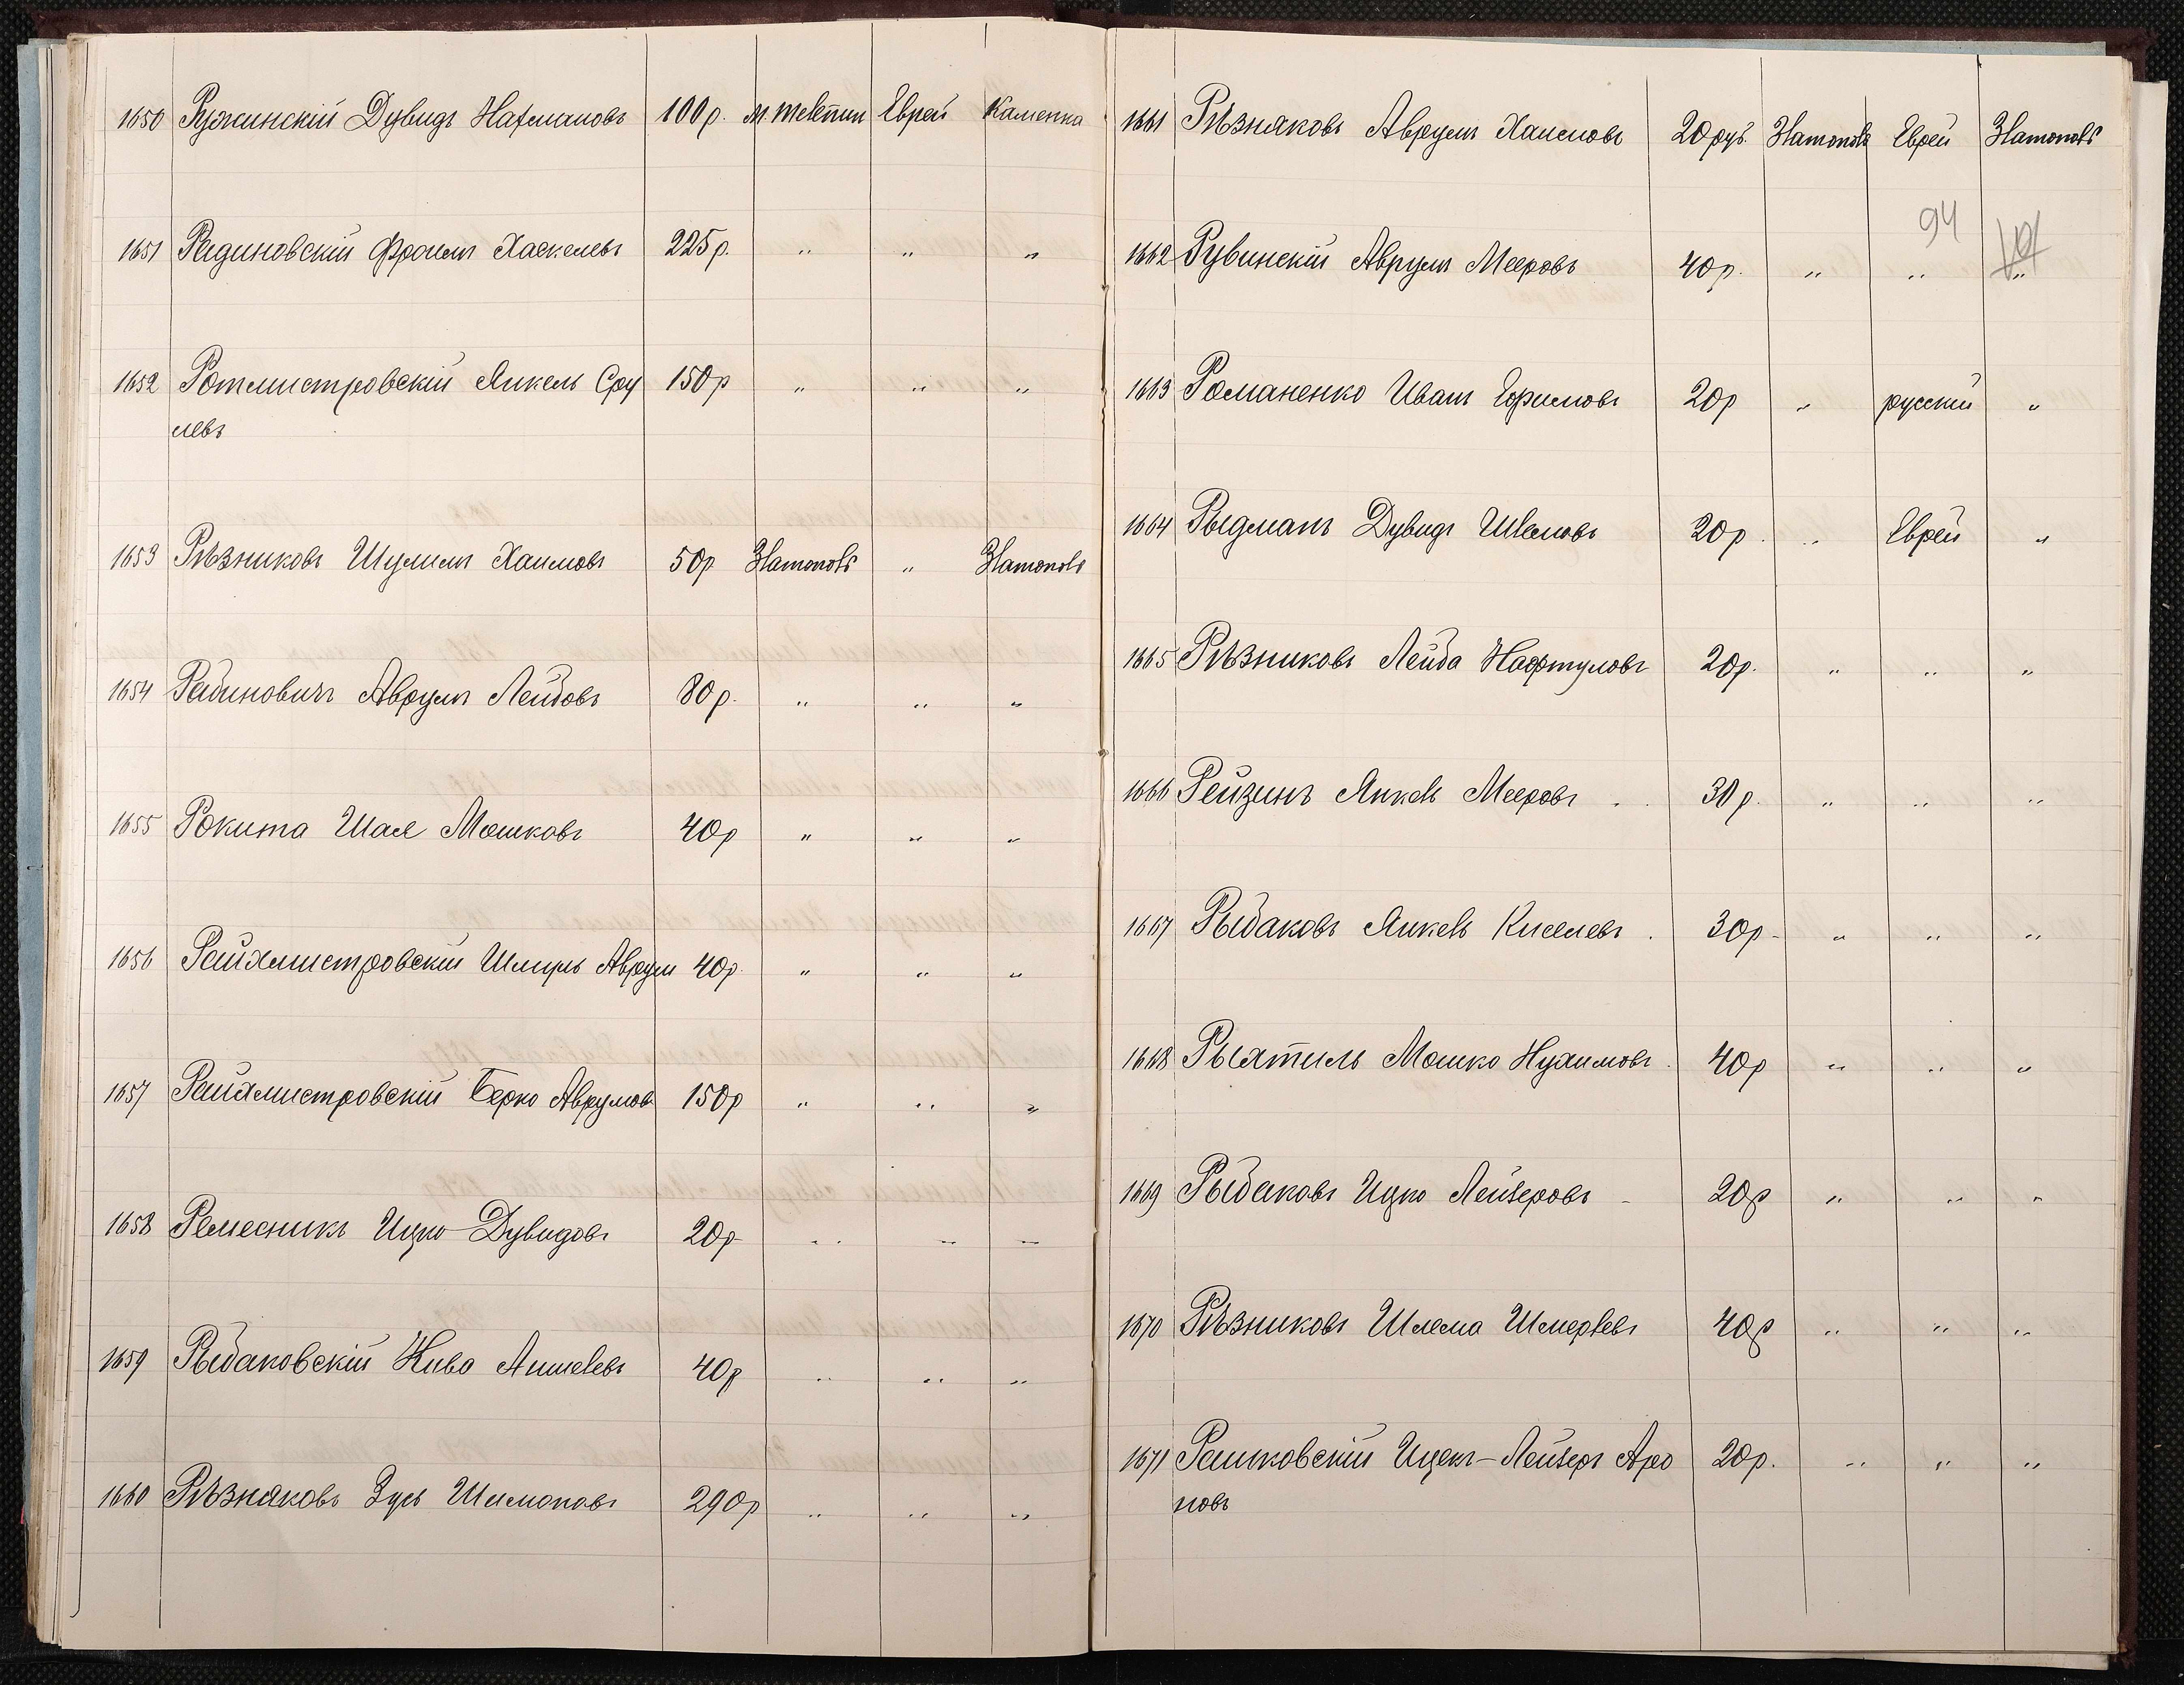 1650 Ружинскій Дувидъ Нахмановъ 100р. м. Телепин Еврей Каменка
1651 Радиновскій Фроимъ Хаскелевъ 225р. " " "
1652 Ротмистровскій Янкель Сру 150р " " "
левъ
1653 Рѣзниковъ Шулимъ Хаимовъ 50р Златополь " Златополь
1654 Рабиновичъ Аврумъ Лейбовъ 80р. " " "
1655 Рокита Шая Мошковъ 40р " " "
1656 Райхмистровскій Шмиръ Аврум 40р " " "
1657 Райхмистровскій Берко Аврумов 150р " " "
1658 Ремесникъ Ицко-Дувидовъ 20р " " "
1659 Рыбаковскій Кива Аншелевъ 40р " " "
1660 Рѣзняковъ Зусь Шимоновъ 290р " " "
1661 Рѣзняковъ Аврумъ Хаимовъ 20руб. Златополь Еврей Златополь
94 101
1662 Рувинскій Аврумъ Мееровъ 40р. " " "
1663 Романенко Иванъ Ефимовъ 20р " русскій "
1664 Рыдманъ Дувидъ Шлемовъ 20р. " Еврей "
1665 Рѣзниковъ Лейба Нафтуловъ 20р. " " "
1666 Рейзинъ Янкель Мееровъ 30р. " " "
1667 Рыбаковъ Янкель Киселевъ 30р " " "
1668 Рыхтиль Мошко Нухимовъ 40р " " "
1669 Рыбаковъ Ицко Лейзеровъ 20р " " "
1670 Рѣзниковъ Шлема Шмерлевъ 40р " " "
1671 Рашковскій Ицекъ-Лейзеръ Аро 20р. " " "
новъ